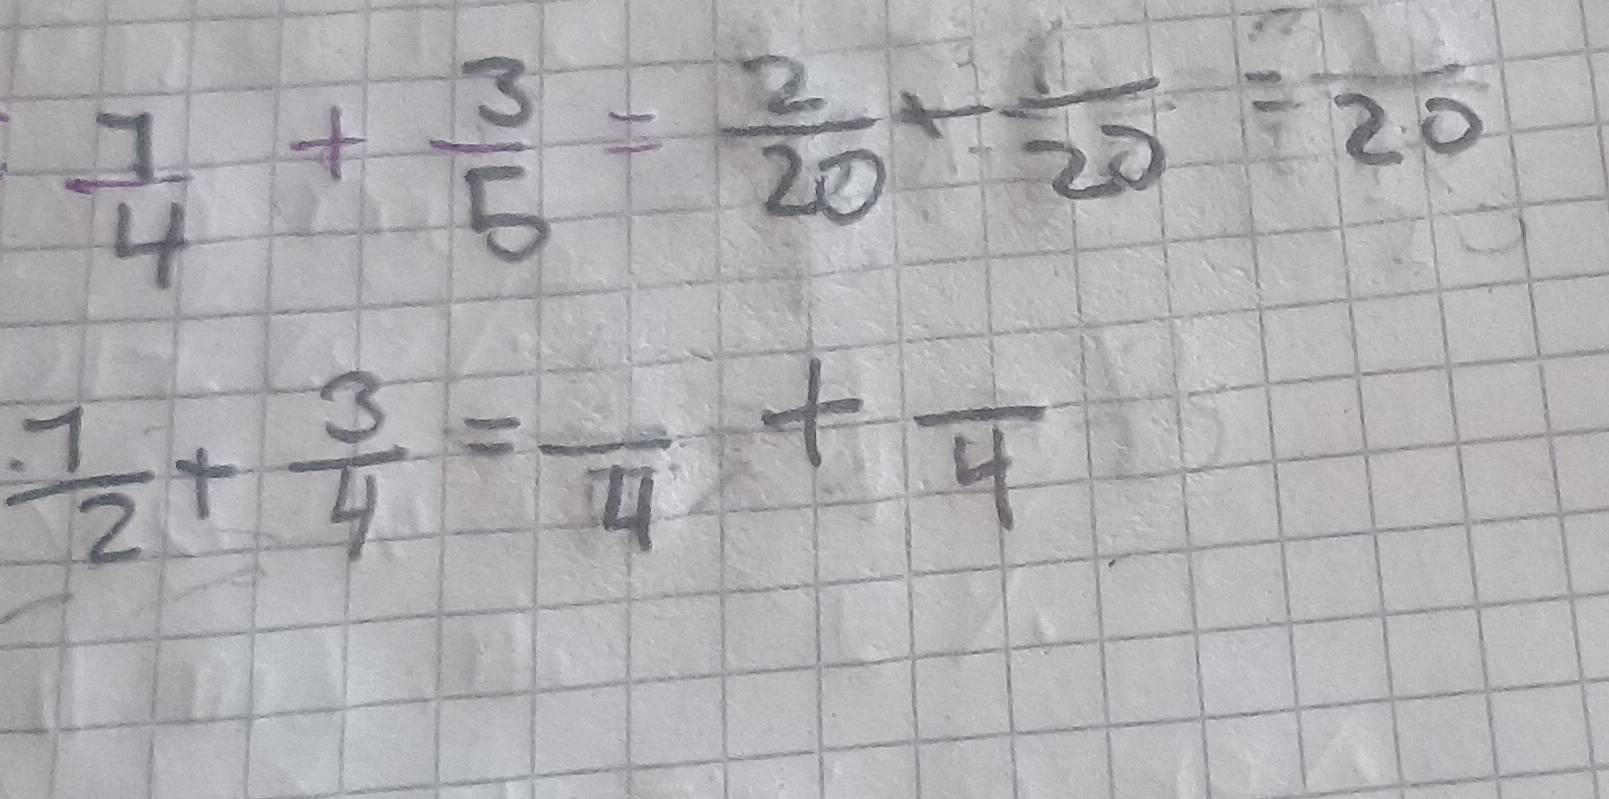 1/4 + 3/5 = 2/20 + /20 = /20
1/2 + 3/4 = /4 + /4